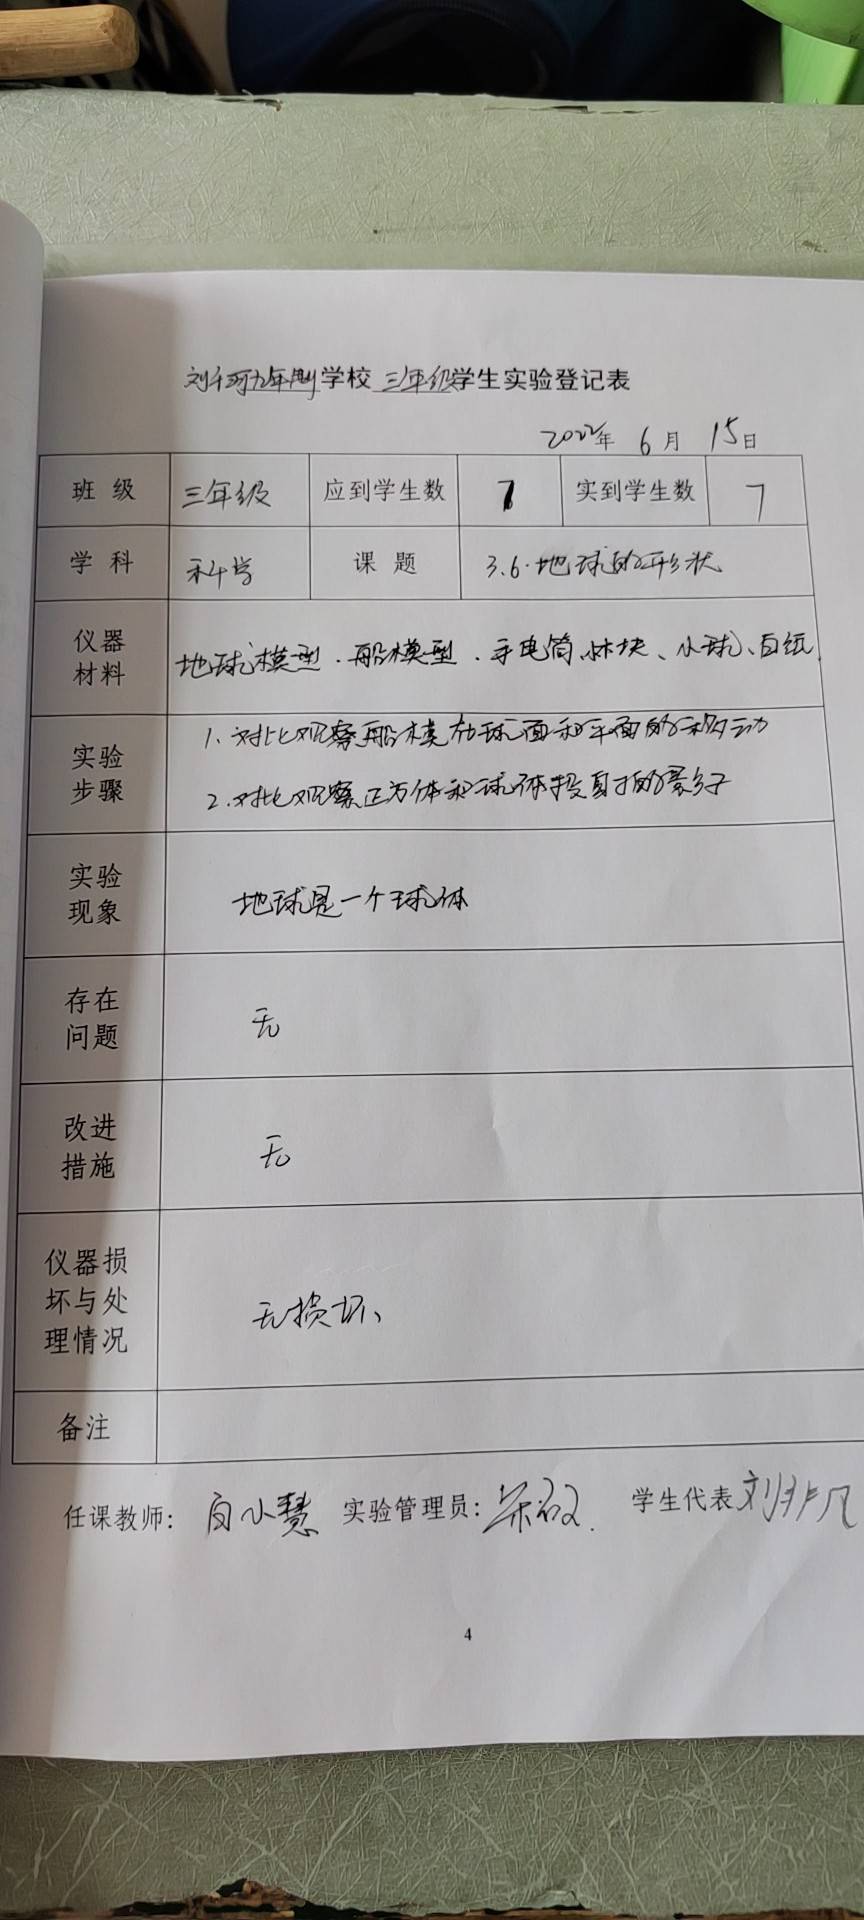 刘 九年制学校 三年级学生实验登记表
2022年 6 月 15日
班 级 三年级 应到学生数 7 实到学生数 7
学 科 科学 课 题 3.6.地球的形状
仪器
材料
地球模型、船模型、手电筒、木块、小球、白纸
实验
步骤
1.对比观察船模在球面和平面的移动
2.对比观察正方体和球体投射的影子
实验
现象
地球是一个球体
存在
问题
无
改进
措施
无
仪器损
坏与处
理情况
无损坏、
备注
任课教师: 白小慧 实验管理员: 学生代表 刘非凡
4